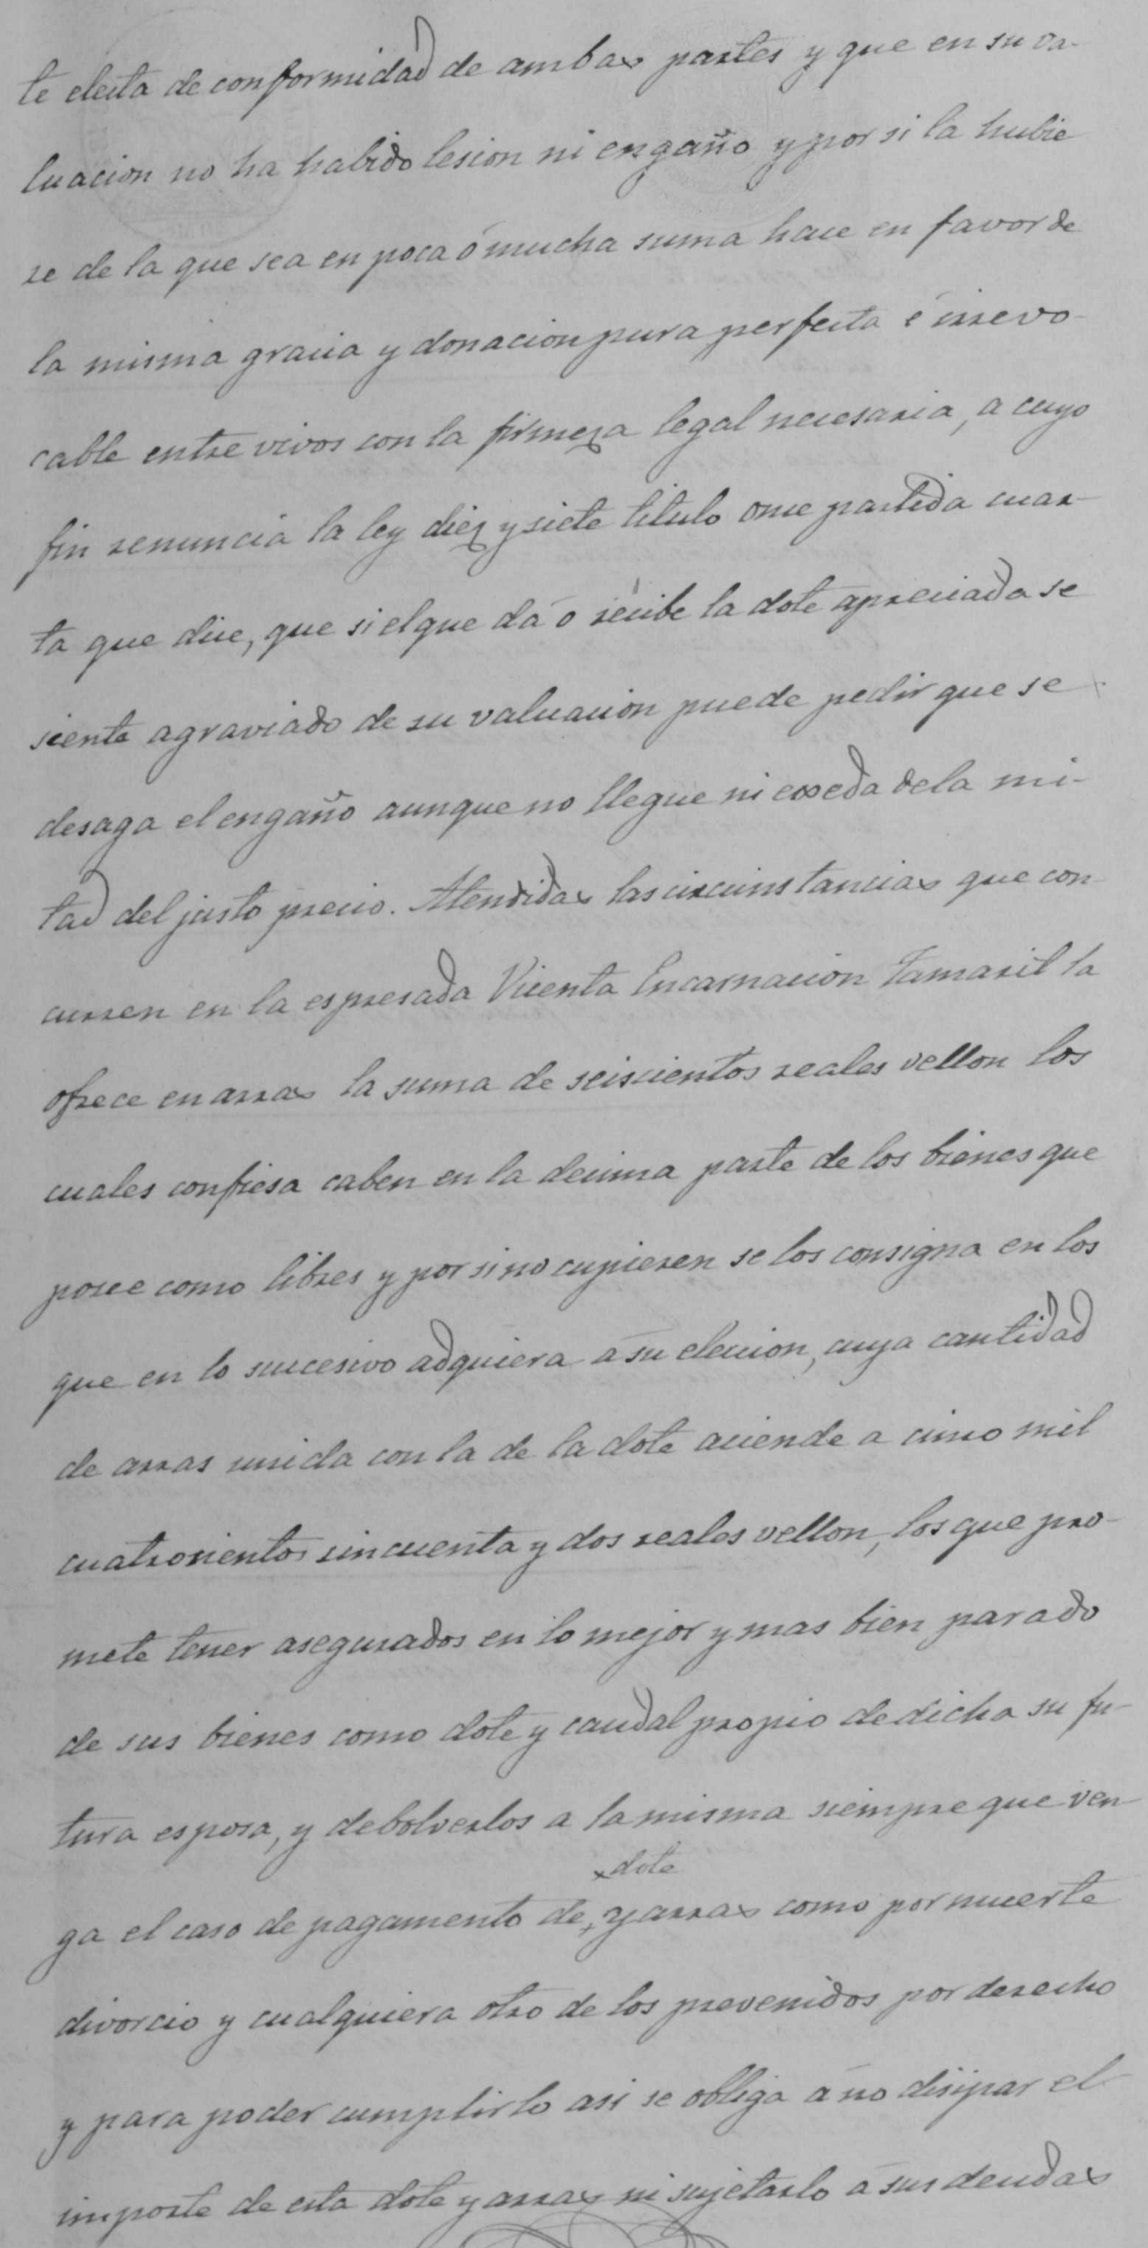 te electa de conformidad de ambas partes y que en su va-
luacion no ha habido lesion ni engaño y por si la hubie
re de la que sea en poca ó mucha suma hace en favor de
la misma gracia y donacion pura perfecta é irrevo-
cable entre vivos con la firmeza legal necesaria, a cuyo
fin renuncia la ley diez y siete titulo once partida cuar-
ta que dice, que si el que dá o recibe la dote apreciada se
siente agraviado de su valuacion puede pedir que se
desaga el engaño aunque no llegue ni esceda de la mi-
tad del justo precio. Atendidas las circunstancias que con-
curren en la espresada Vicenta Encarnacion Tamarit la
ofrece en arras la suma de seiscientos reales vellon los
cuales confiesa caben en la decima parte de los bienes que
posee como libres y por si no cupieren se los consigna en los
que en lo sucesivo adquiera a su eleccion, cuya cantidad
de arras unida con la de la dote aciende a cinco mil
cuatrocientos sincuenta y dos reales vellon, los que pro-
mete tener asegurados en lo mejor y mas bien parado
de sus bienes como dote y caudal propio de dicha su fu-
tura esposa, y debolverlos a la misma siempre que ven-
dote
ga el caso de pagamento de, y arras como por muerte
divorcio y cualquiera otro de los prevenidos por derecho
y para poder cumplirlo asi se obliga a no disipar el
importe de esta dote y arras ni sujetarlo á sus deudas